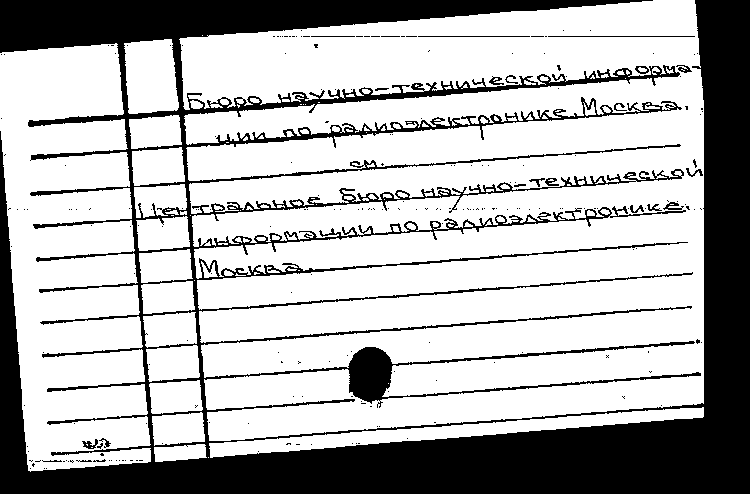 Бюро научно-технической информа-
ции по радиоэлектронике. Москва.
см.
Центральное бюро научно-технической
информации по радиоэлектронике.
Москва.